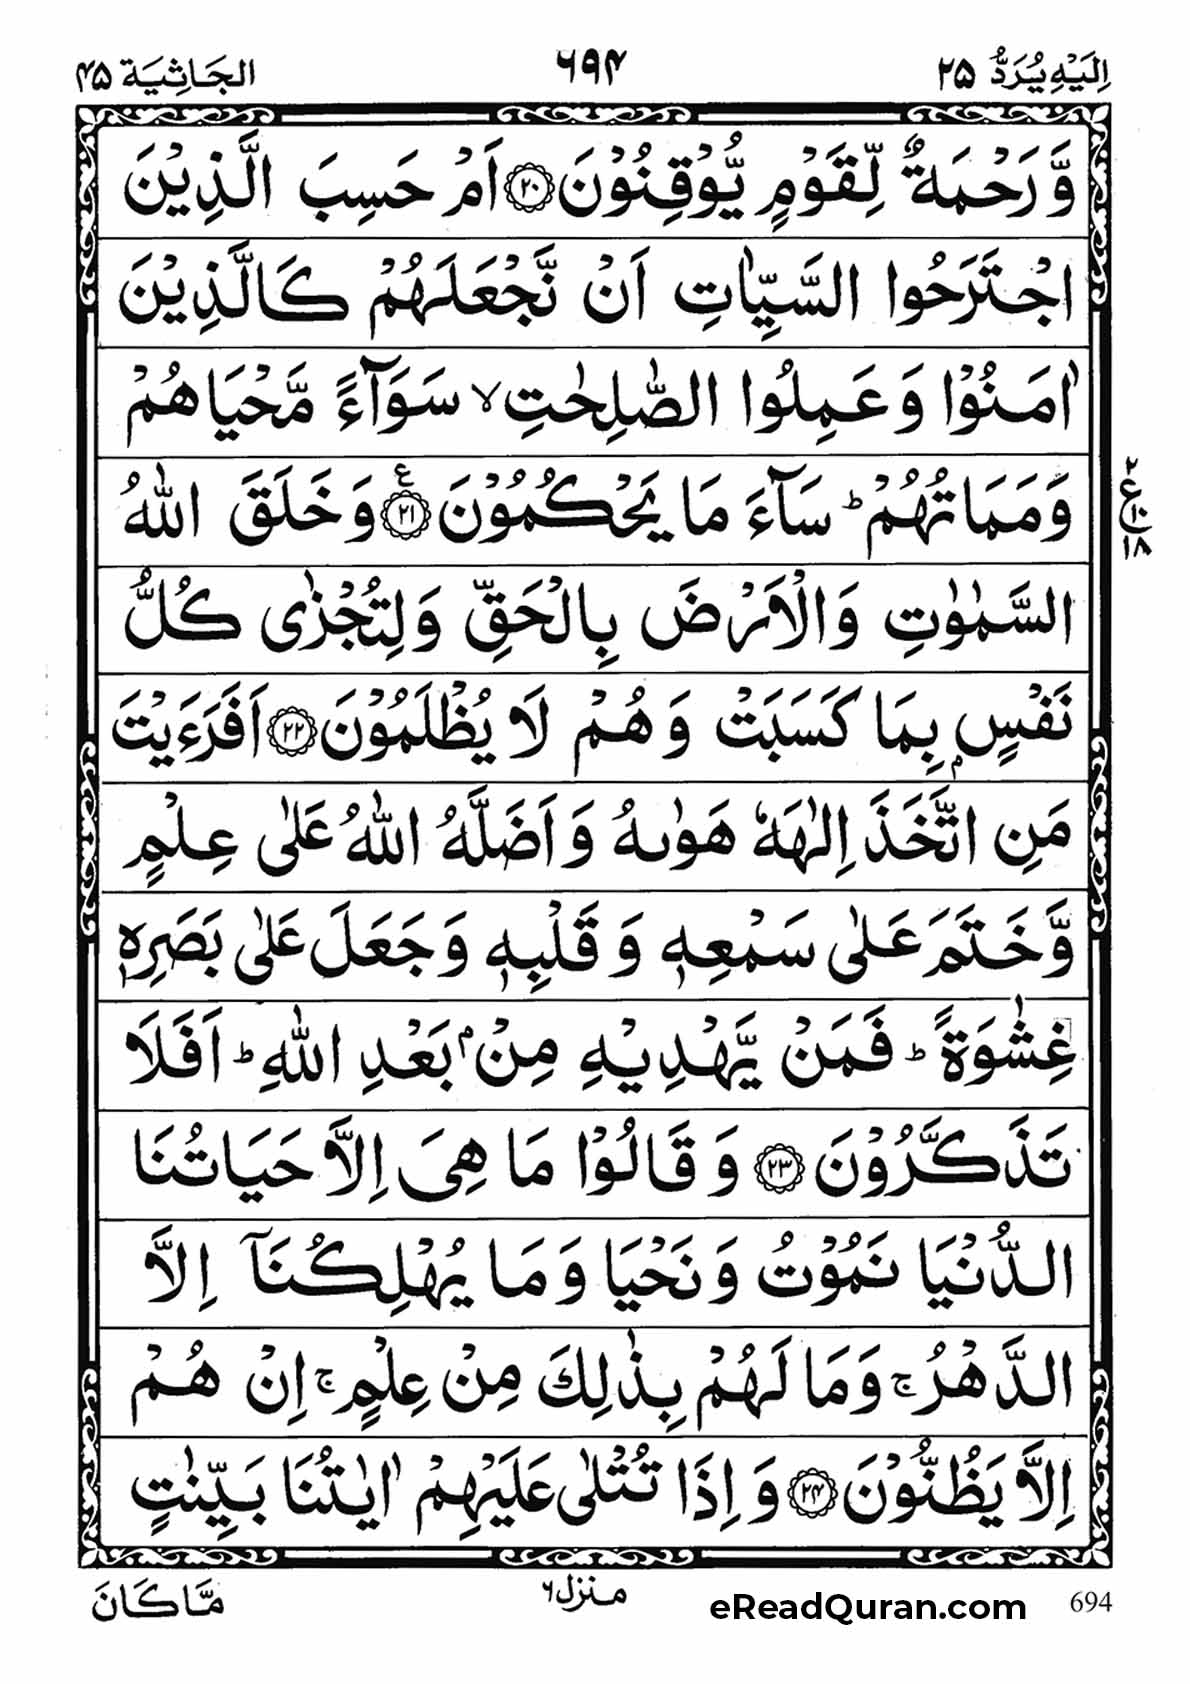 اِلَیْهِ یُرَدُّ ۲۵
۶۹۴
الجَاثِیَة ۴۵
وَّرَحْمَةٌ لِّقَوْمٍ یُّوْقِنُوْنَ ۝۲۰ اَمْ حَسِبَ الَّذِیْنَ
اجْتَرَحُوا السَّیِّاٰتِ اَنْ نَّجْعَلَهُمْ كَالَّذِیْنَ
اٰمَنُوْا وَعَمِلُوا الصّٰلِحٰتِ ۙ سَوَآءً مَّحْیَاهُمْ
وَمَمَاتُهُمْ ؕ سَآءَ مَا یَحْكُمُوْنَ ۝۲۱ ع وَخَلَقَ اللّٰهُ
السَّمٰوٰتِ وَالْاَرْضَ بِالْحَقِّ وَلِتُجْزٰی كُلُّ
نَفْسٍۭ بِمَا كَسَبَتْ وَهُمْ لَا یُظْلَمُوْنَ ۝۲۲ اَفَرَءَیْتَ
مَنِ اتَّخَذَ اِلٰهَهٗ هَوٰىهُ وَاَضَلَّهُ اللّٰهُ عَلٰی عِلْمٍ
وَّخَتَمَ عَلٰی سَمْعِهٖ وَقَلْبِهٖ وَجَعَلَ عَلٰی بَصَرِهٖ
غِشٰوَةً ؕ فَمَنْ یَّهْدِیْهِ مِنْۢ بَعْدِ اللّٰهِ ؕ اَفَلَا
تَذَكَّرُوْنَ ۝۲۳ وَقَالُوْا مَا هِیَ اِلَّا حَیَاتُنَا
الدُّنْیَا نَمُوْتُ وَنَحْیَا وَمَا یُهْلِكُنَآ اِلَّا
الدَّهْرُ ۚ وَمَا لَهُمْ بِذٰلِكَ مِنْ عِلْمٍ ۚ اِنْ هُمْ
اِلَّا یَظُنُّوْنَ ۝۲۴ وَاِذَا تُتْلٰی عَلَیْهِمْ اٰیٰتُنَا بَیِّنٰتٍ
۲
ع ۱۰
۱۸
694
eReadQuran.com
منزل ۶
مَّا كَانَ